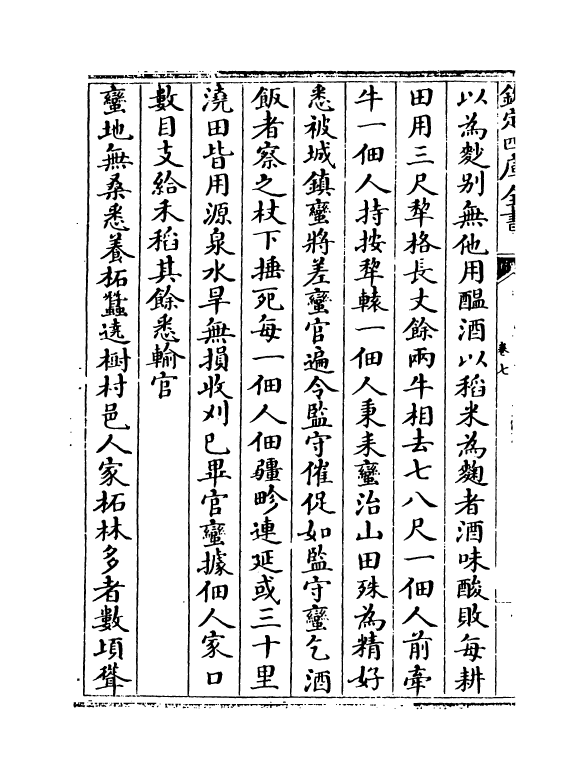 欽定四庫全書
卷七
以為麨别無他用醖酒以稻米為麴者酒味酸敗每耕
田用三尺犂格長丈餘兩牛相去七八尺一佃人前牽
牛一佃人持按犂轅一佃人秉耒蠻治山田殊為精好
悉被城鎮蠻將差蠻官遍令監守催促如監守蠻乞酒
飯者察之杖下捶死每一佃人佃疆畛連延或三十里
澆田皆用源泉水旱無損收刈已畢官蠻據佃人家口
數目支給禾稻其餘悉輸官
蠻地無桑悉養柘蠶遶樹村邑人家柘林多者數頃聳